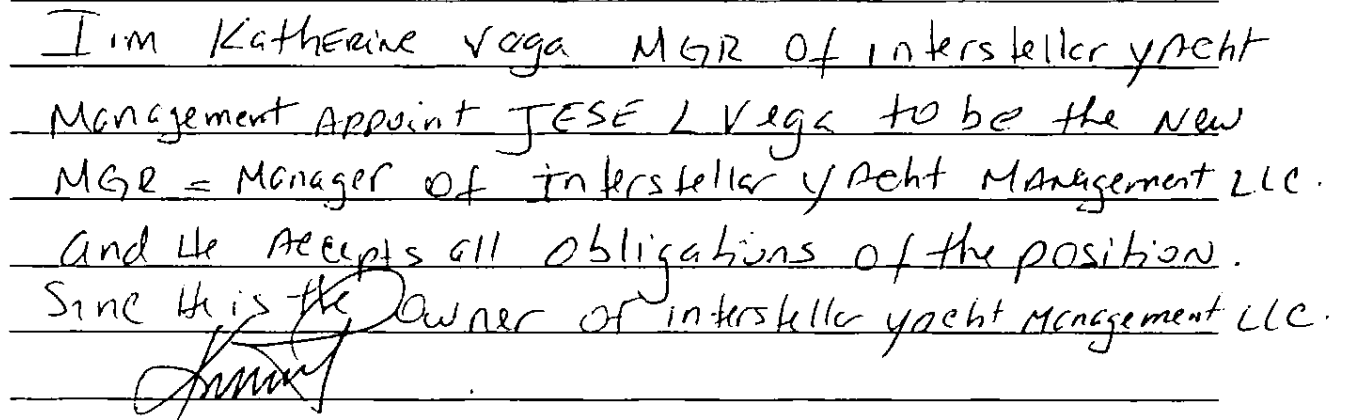 I im Katherine Vega MGR Of interstellar yacht
Management Appoint JESE L Vega to be the New
MGR = Manager of interstellar yacht Management LLC.
and He Accepts all obligations of the position.
Sinc He is the Owner of interstellar yacht Management LLC.